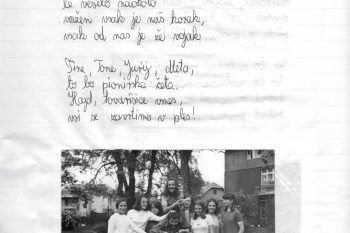 le veselo naokolo
važen vsak je naš korak,
vsak od nas je že vojak.
Tine, Tone, Jurij, Meta,
to bo pionirska četa.
Hajd, tovarišice vnes,
vsi se zavrtimo v ples!